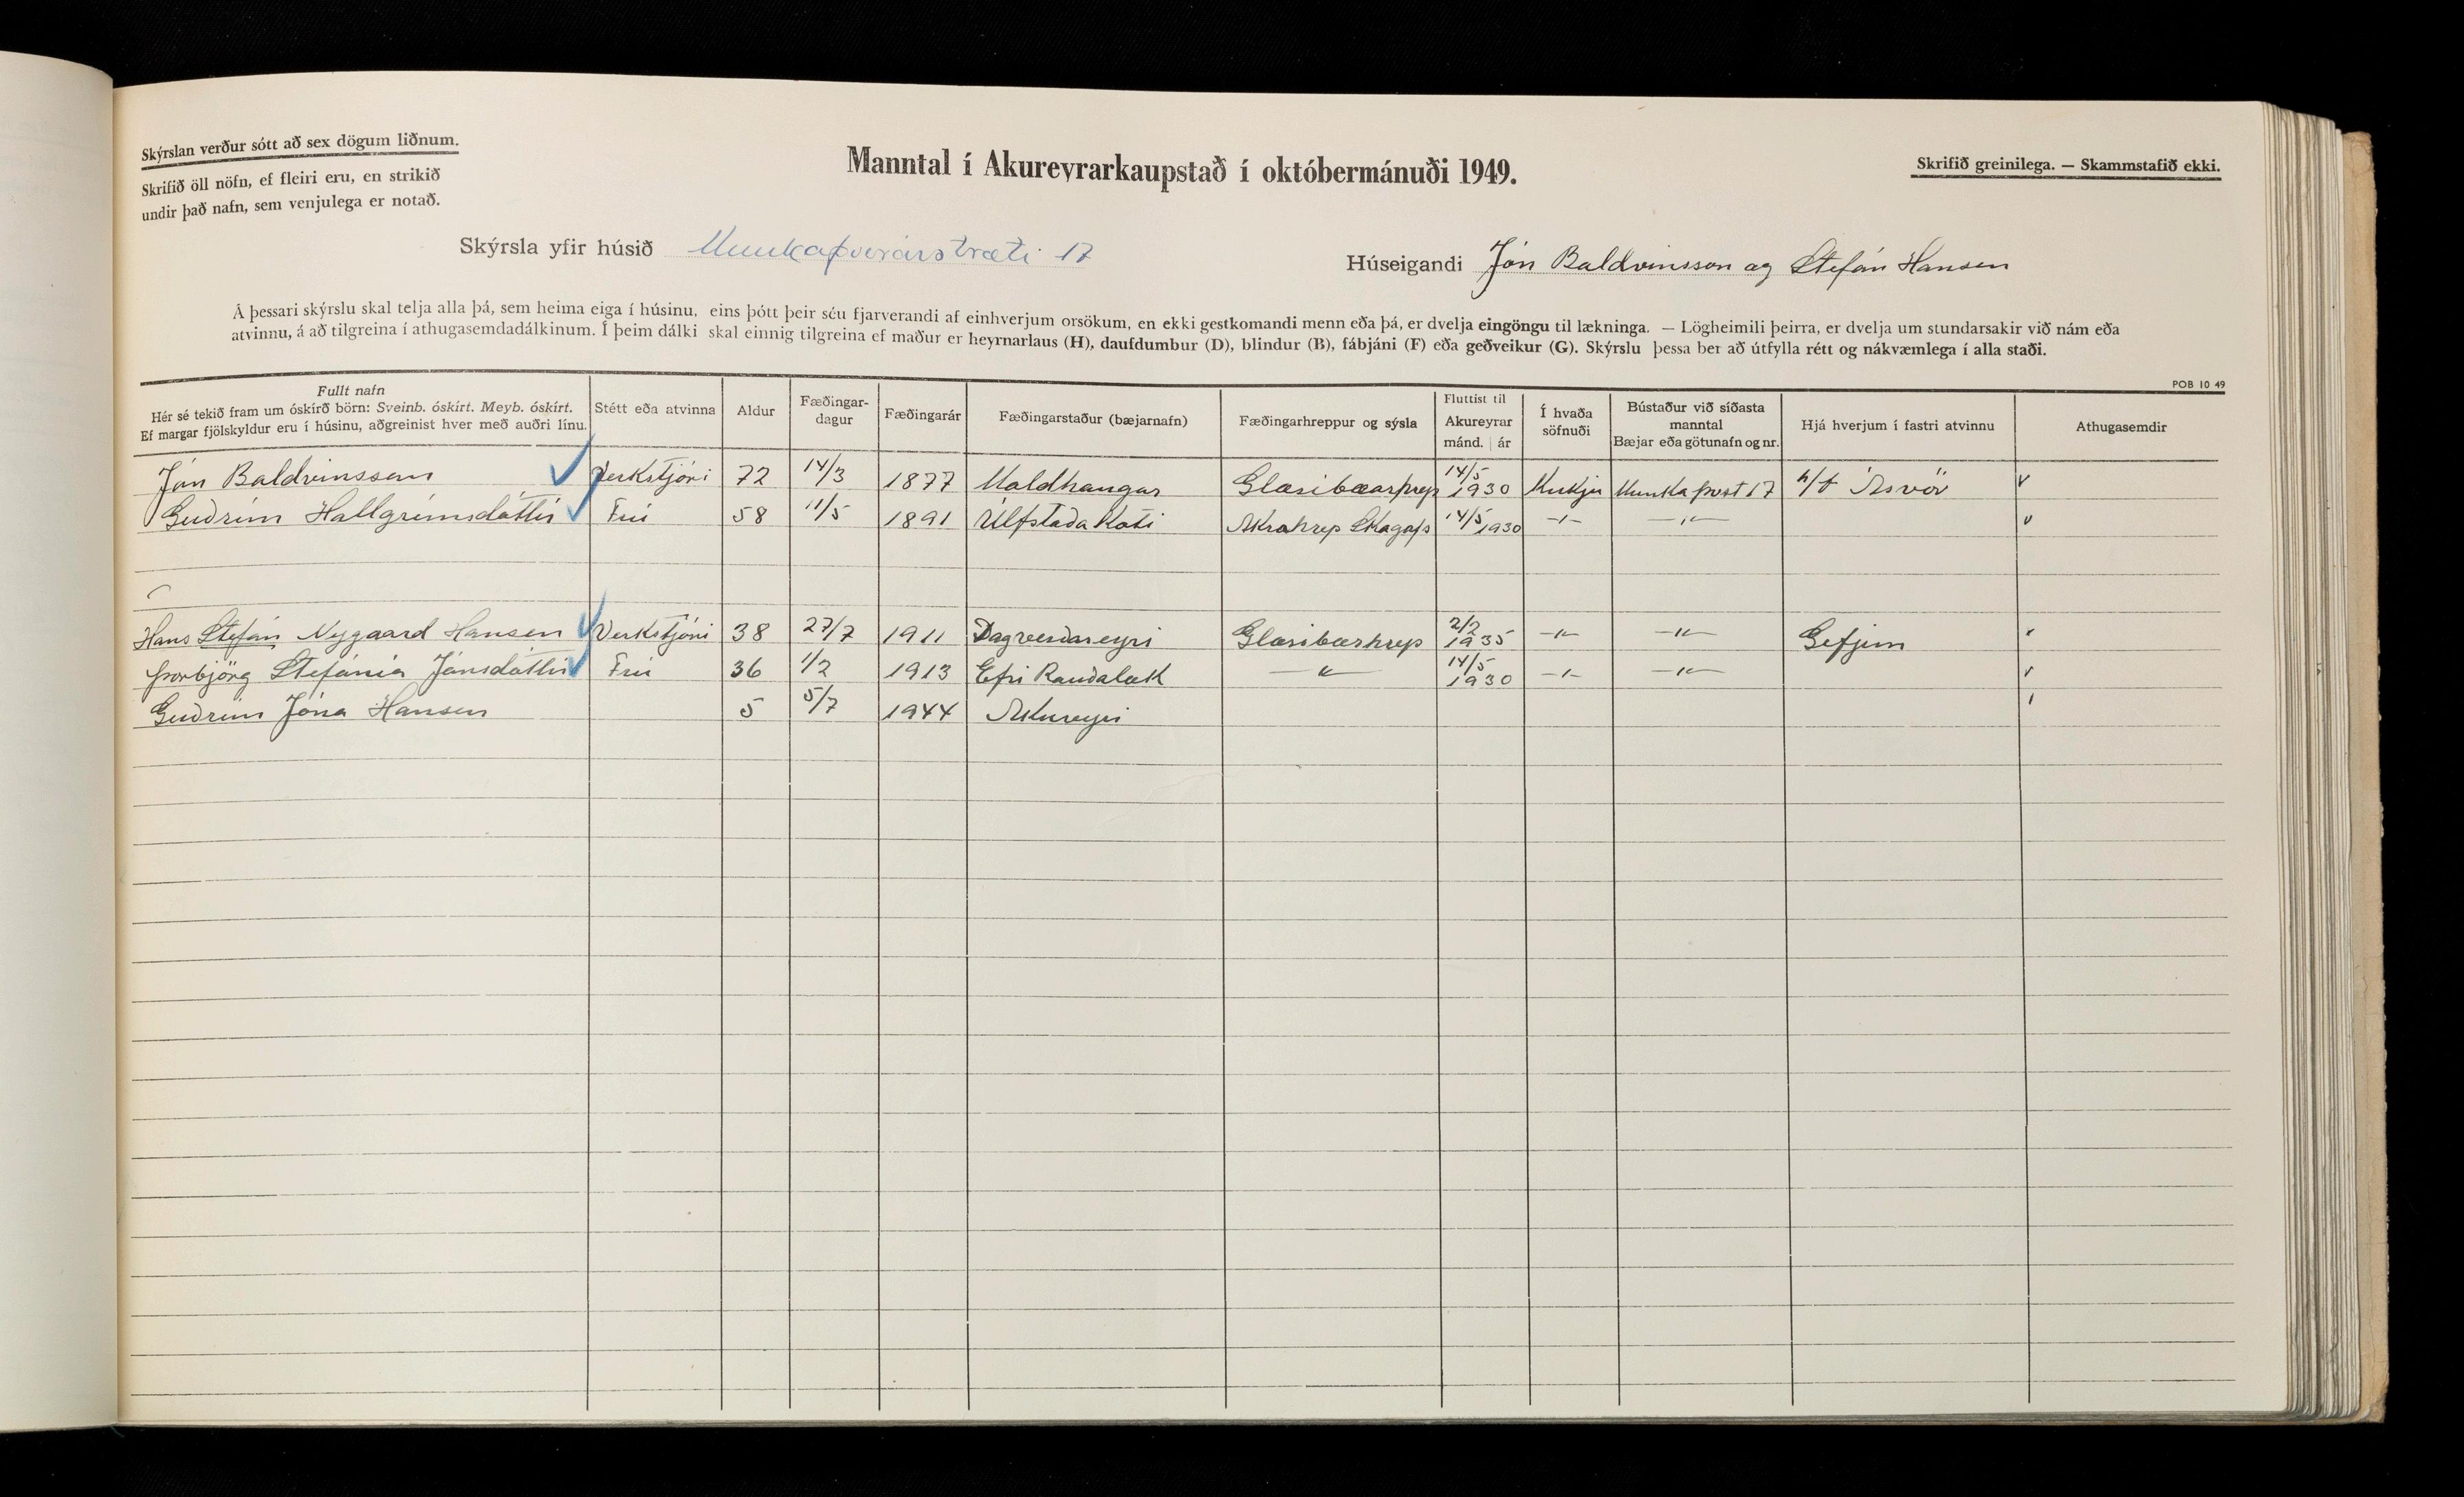 Skýrslan verður sótt að sex dögum liðnum.
Skrifið öll nöfn, ef fleiri eru, en strikið
undir það nafn, sem venjulega er notað.
Manntal í Akureyrarkaupstað í októbermánuði 1949.
Skrifið greinilega. — Skammstafið ekki.
Skýrsla yfir húsið Munkaþverárstræti 17
Húseigandi Jón Baldvinsson og Stefán Hansen
Á þessari skýrslu skal telja alla þá, sem heima eiga í húsinu, eins þótt þeir séu fjarverandi af einhverjum orsökum, en ekki gestkomandi menn eða þá, er dvelja eingöngu til lækninga. — Lögheimili þeirra, er dvelja um stundarsakir við nám eða
atvinnu, á að tilgreina í athugasemdadálkinum. Í þeim dálki skal einnig tilgreina ef maður er heyrnarlaus (H), daufdumbur (D), blindur (B), fábjáni (F) eða geðveikur (G). Skýrslu þessa ber að útfylla rétt og nákvæmlega í alla staði.
POB 10 49
Fullt nafn
Hér sé tekið fram um óskírð börn: Sveinb. óskírt. Meyb. óskírt.
Ef margar fjölskyldur eru í húsinu, aðgreinist hver með auðri línu.
Stétt eða atvinna
Aldur
Fæðingar-
dagur
Fæðingarár
Fæðingarstaður (bæjarnafn)
Fæðingarhreppur og sýsla
Fluttist til
Akureyrar
mánd. | ár
Í hvaða
söfnuði
Bústaður við síðasta
manntal
Bæjar eða götunafn og nr.
Hjá hverjum í fastri atvinnu
Athugasemdir
Jón Baldvinsson Verkstjóri 72 14/3 1877 Moldhaugar Glæsibæarhrep 14/5 1930 Kirkju Munkaþvst 17 h/f Ásvör
Guðrún Hallgrímsdóttir Frú 58 11/5 1891 Úlfstaða Koti Akrahrep Skagafs 14/5 1930 -"- -"-
Hans Stefán Nygaard Hansen Verkstjóri 38 27/7 1911 Dagverdareyri Glæsibærhrep 2/2 1935 -"- -"- Gefjun
Þorbjörg Stefánía Jónsdóttir Frú 36 1/2 1913 Efri Raudalæk -"- 14/5 1930 -"- -"-
Guðrún Jóna Hansen 5 5/7 1944 Akureyri